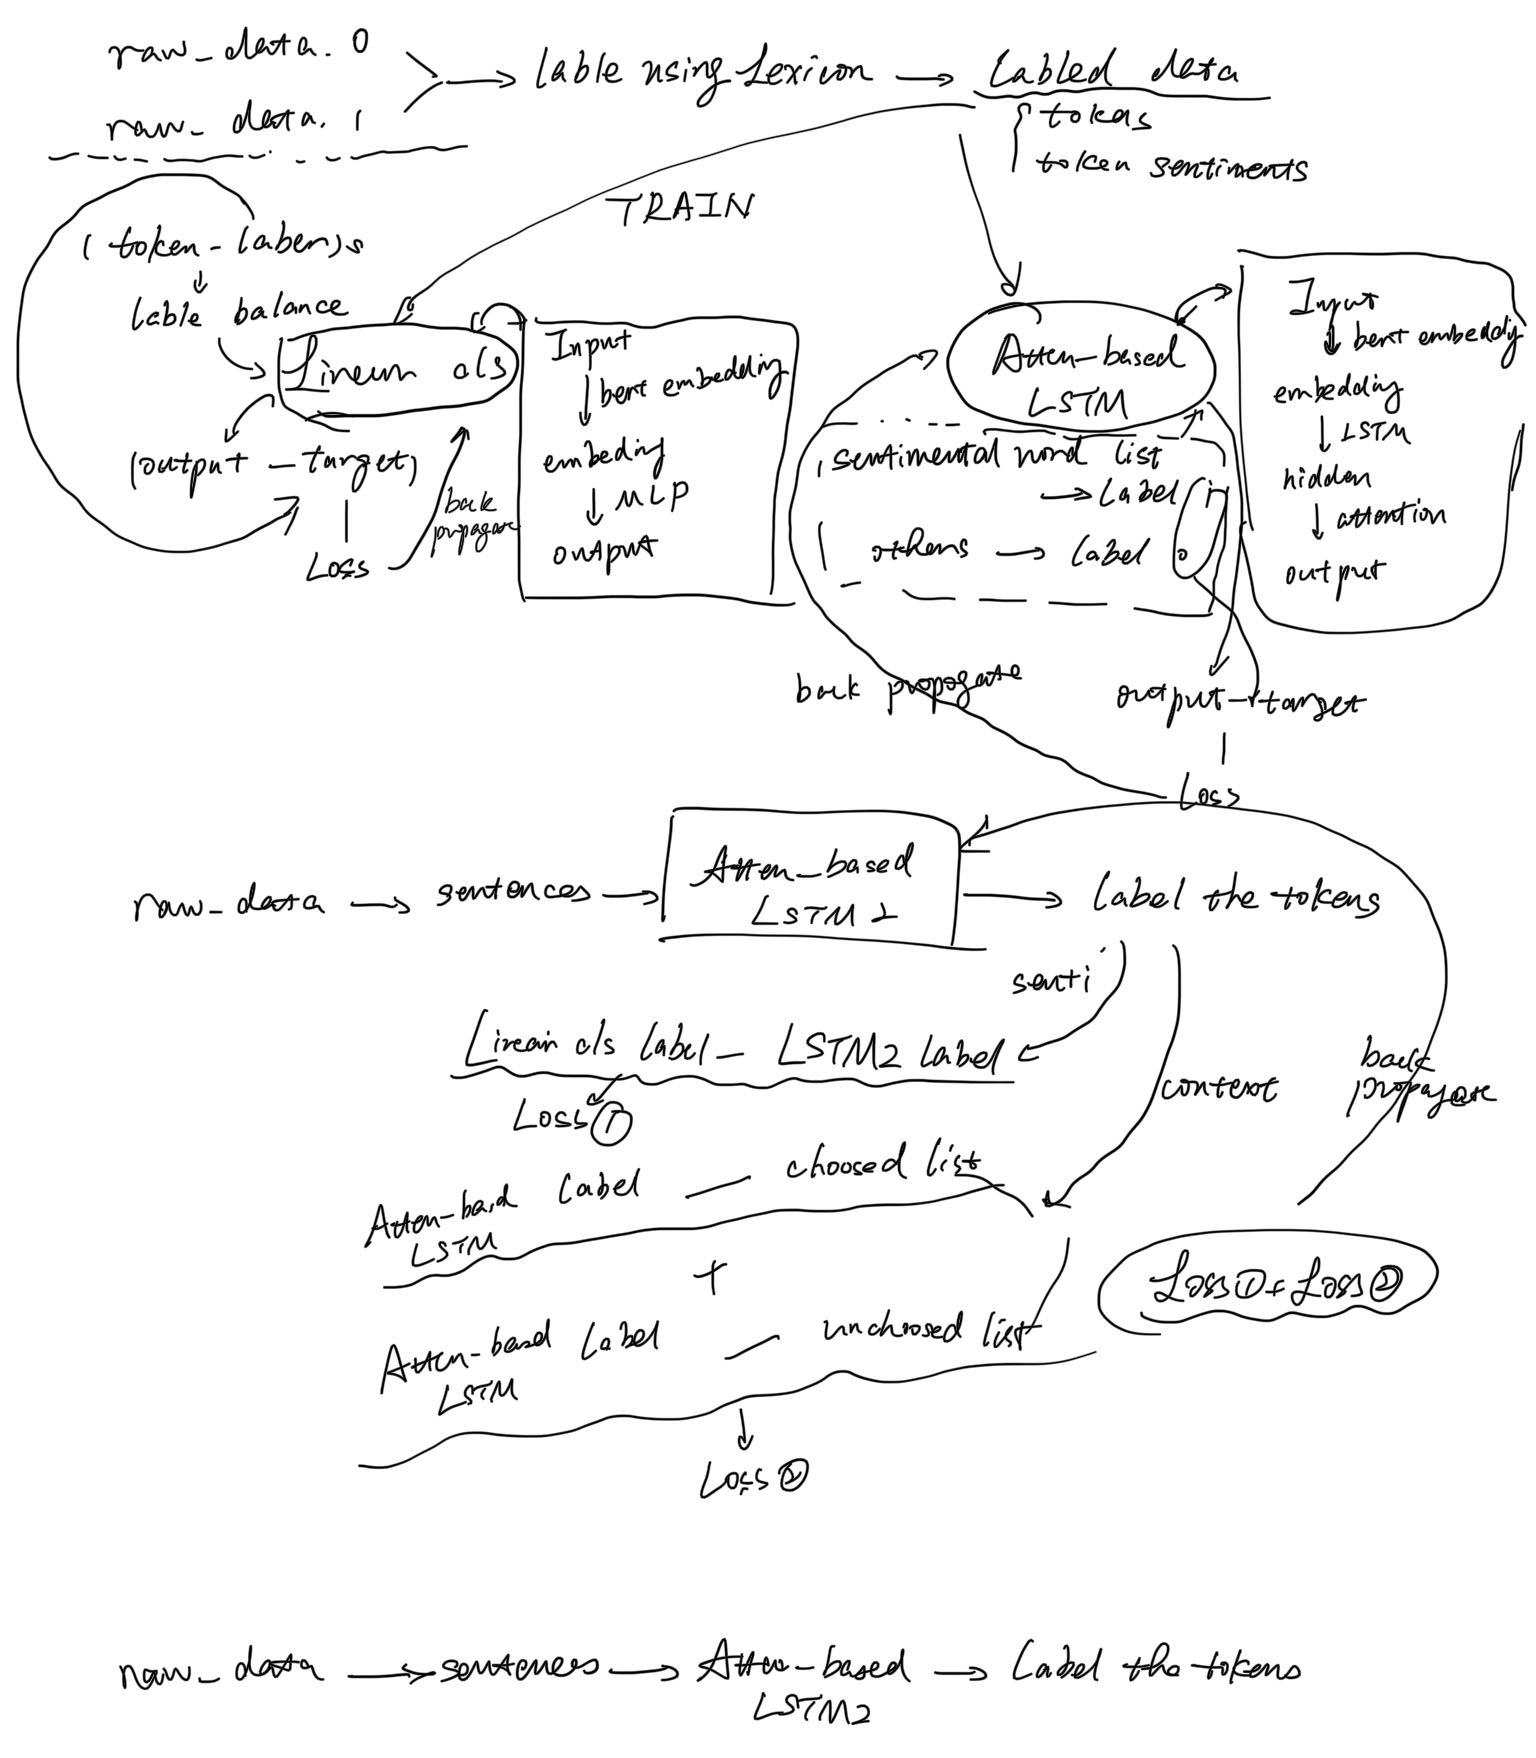 raw_data.0
raw_data.1
Lable using Lexicon
Labled data
tokens
token sentiments
TRAIN
(token-laber)s
lable balance
Linear cls
(output - target)
Loss
back
propagate
Input
bert embedding
embeding
MLP
output
Atten-based
LSTM
sentimental word list
Label 1
others → Label 0
Input
bert embeddig
embedding
LSTM
hidden
attention
output
back propogate
output - target
Loss
raw_data → sentences →
Atten-based
LSTM 2
Label the tokens
senti
Linear cls Label - LSTM2 Label
Loss①
context
back
propagate
Atten-based Label - choosed list
LSTM
+
Atten-based Label - unchoosed list
LSTM
Loss②
Loss①+Loss②
raw_data → sentences → Atten-based → Label the tokens
LSTM2